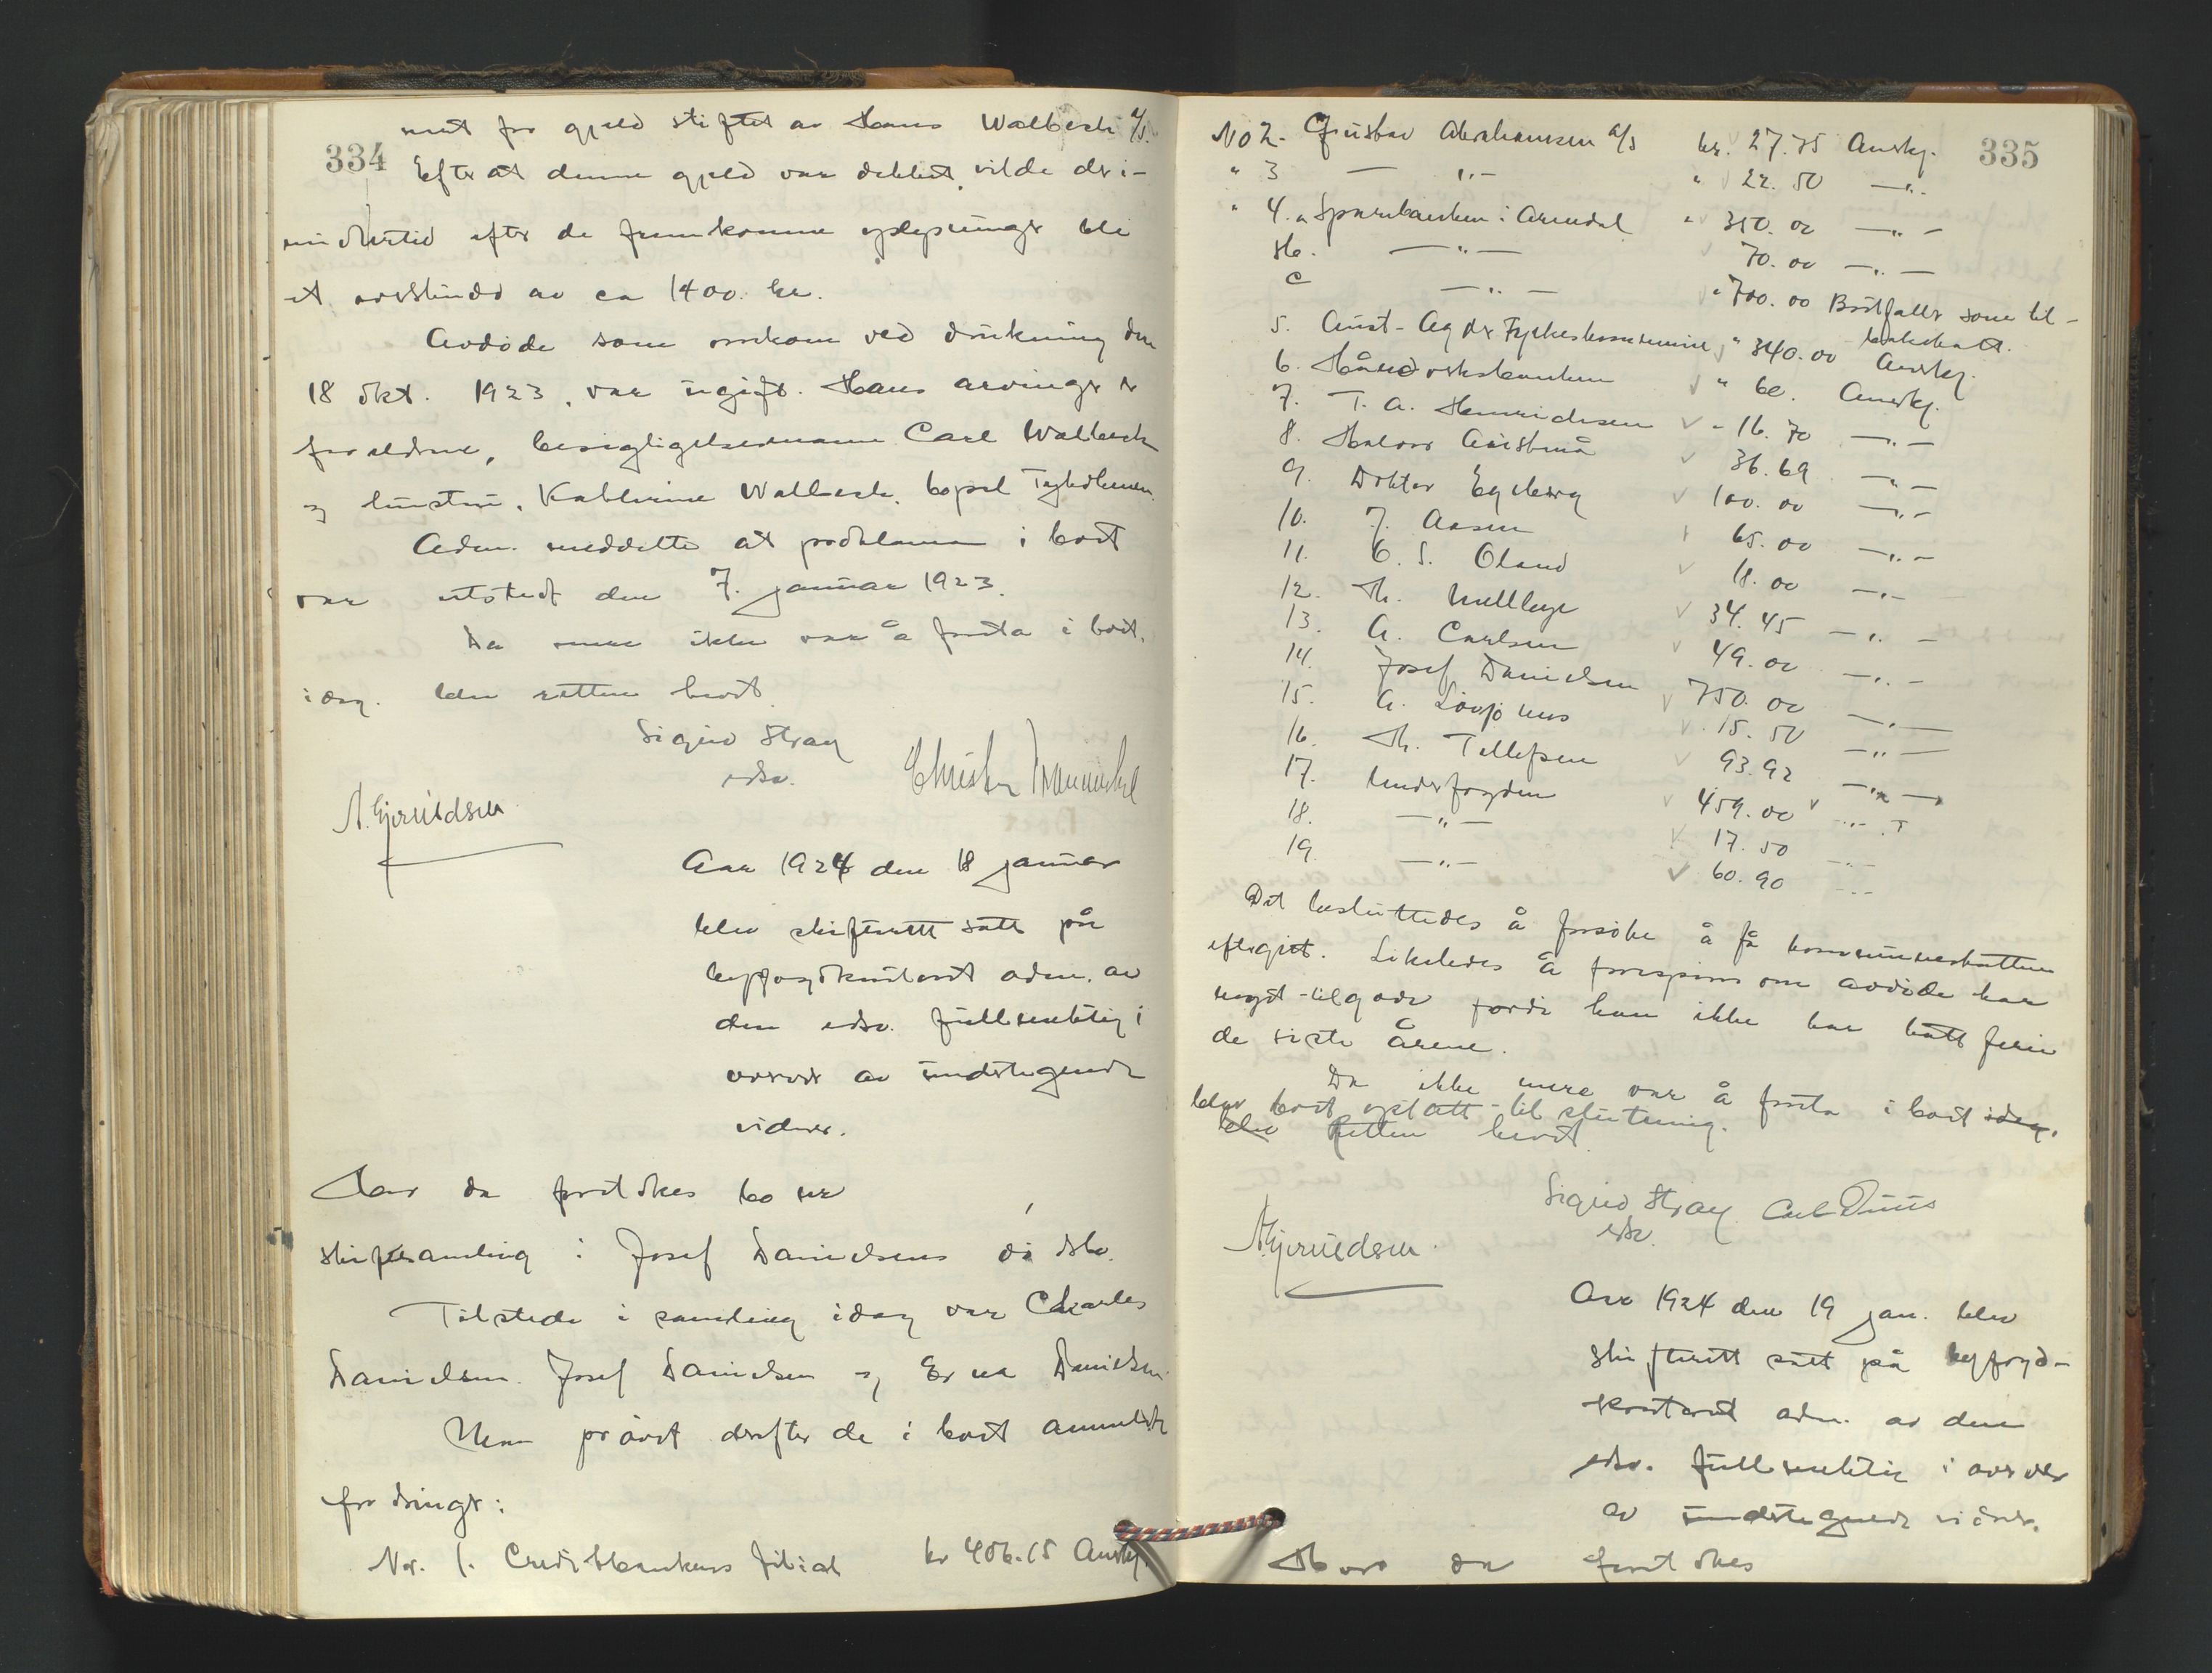 334
met for gjeld stiftet av Hans Walbech A/S.
Efterat denne gjeld var dekket, vilde der i-
midlertid efter de fremkomne oplysninger bli
et overskudd av ca 1400 kr.
Avdøde som omkom ved drukning den
18 okt. 1923, var ugift. Hans arvinger er
forældrene, besigtigelsesmann Carl Walbech
og hustru, Kathrine Walbech, bopæl
Adm. meddelte at proklama i boet
var utstedt den 7. januar 1923.
Da mere ikke var å foreta i boet,
idag, blev retten hevet.
Sigurd Stray
edsv.
A. Gjeruldsen
Aar 1924 den 18 januar
blev skifterett satt på
byfogdkontoret adm. av
den edsv. fullmektig i
overvær av undertegnede
vidner.
Hvor da foretokes
skiftesamling i Josef Danielsens dødsbo.
Tilstede i samling idag var Charles
Danielsen, Josef Danielsen og Erna Danielsen.
Man prøvet derefter de i boet anmeldte
fordringer:
Nr. 1. Creditbankens filial kr 406.15 Anerkj.
335
No 2. Gustav Abrahamsen A/S kr. 27.75 Anerkj.
" 3 — " — " 22.50 — " —
" 4.a Sparebanken i Arendal " 350.00 — " —
4b. — " — 70.00 — " —
c — " — " 700.00 Bortfaller som til-
bakekalt.
5. Aust-Agder Fylkeskommune, " 340.00 Anerkj.
6. Håndverksbanken " 60. Anerkj.
7. T. A. Henrichsen " 16.70 — " —
8. Halvor Austenå 36.69 — " —
9. Doktor Egeberg 100.00 — " —
10. J. Aasen 65.00 — " —
11. O. S. Oland 18.00 — " —
12. Th. 34.45 — " —
13. A. Carlsen 49.00 — " —
14. Josef Danielsen 750.00 — " —
15. A. 15.50 — " —
16. Th. Tellefsen 93.92 — " —
17. Underfogden 459.00 — " —
18. — " — 17.50 — " —
19. — " — 60.90 — " —
Det besluttedes å forsøke å få kommuneskatten
eftergitt. Likeledes å forespørre om avdøde har
noget tilgode fordi han ikke har hatt ferie
de siste årene.
Da ikke mere var å foreta i boet idag,
blev boet optatt til slutning.
blev Retten hevet.
Sigurd Stray
edsv.
Carl Duus
A. Gjeruldsen
Aar 1924 den 19 jan. blev
skifterett satt på byfogd-
kontoret adm. av den
edsv. fullmektig i overvær
av undertegnede vidner.
Hvor da foretokes